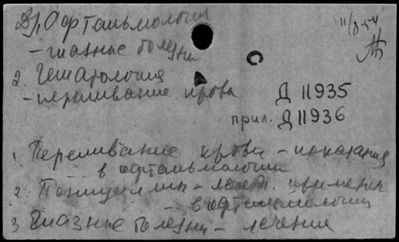 Др. Офтальмология
- глазные болезни
2. Гематология
- переливание крови
Д 11935
прил. Д 11936
1. Переливание крови - показания
в офтальмологии
2. Пенициллин - леч. применен.
- в офтальмологии
3. Глазные болезни - лечение